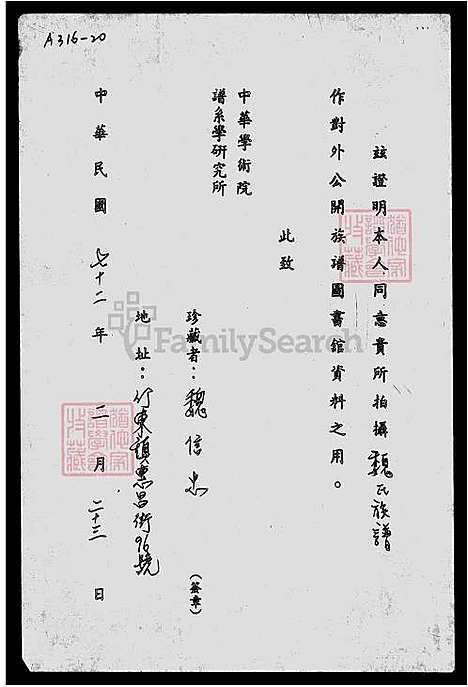 A316-20
玆證明本人同意貴所拍攝魏氏族譜
作對外公開族譜圖書館資料之用。
此致
中華學術院
譜系學研究所
珍藏者：魏信忠（簽章）
地址：竹東鎮惠昌街96號
中華民國七十二年二月二十三日
FamilySearch